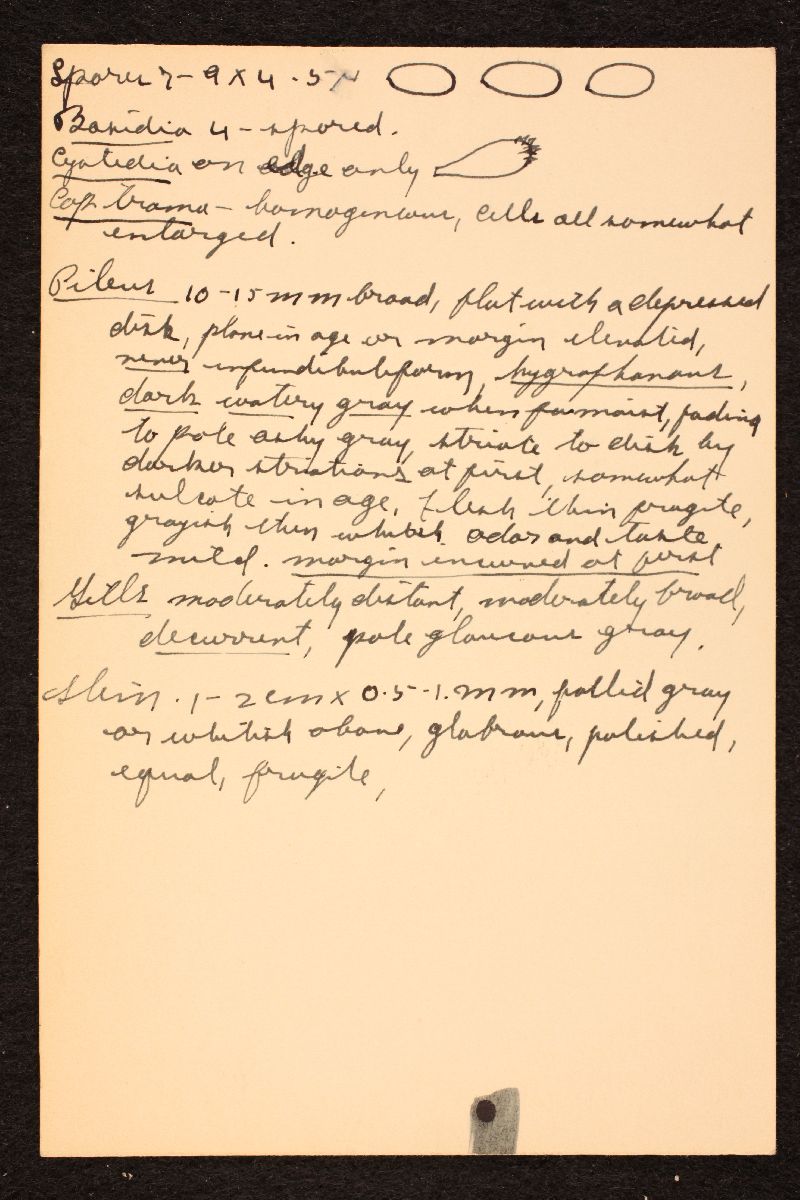 Spores 7-9 X 4-5 µ
Basidia 4-spored.
Cystidia on edge only
Cap trama - homogeneous, cells all somewhat
enlarged.
Pileus 10-15 mm broad, flat with a depressed
disk, plane in age or margin elevated,
never infundibuliform, hygrophanous,
dark watery gray when moist, fading
to pale ashy gray, striate to disk by
darker striations at first, somewhat
sulcate in age, flesh thin fragile,
grayish then whitish odor and taste
mild. margin incurved at first
Gills moderately distant, moderately broad,
decurrent, pale glaucous gray.
Stem. 1-2 cm x 0.5-1. mm, pallid gray
or whitish above, glabrous, polished,
equal, fragile,